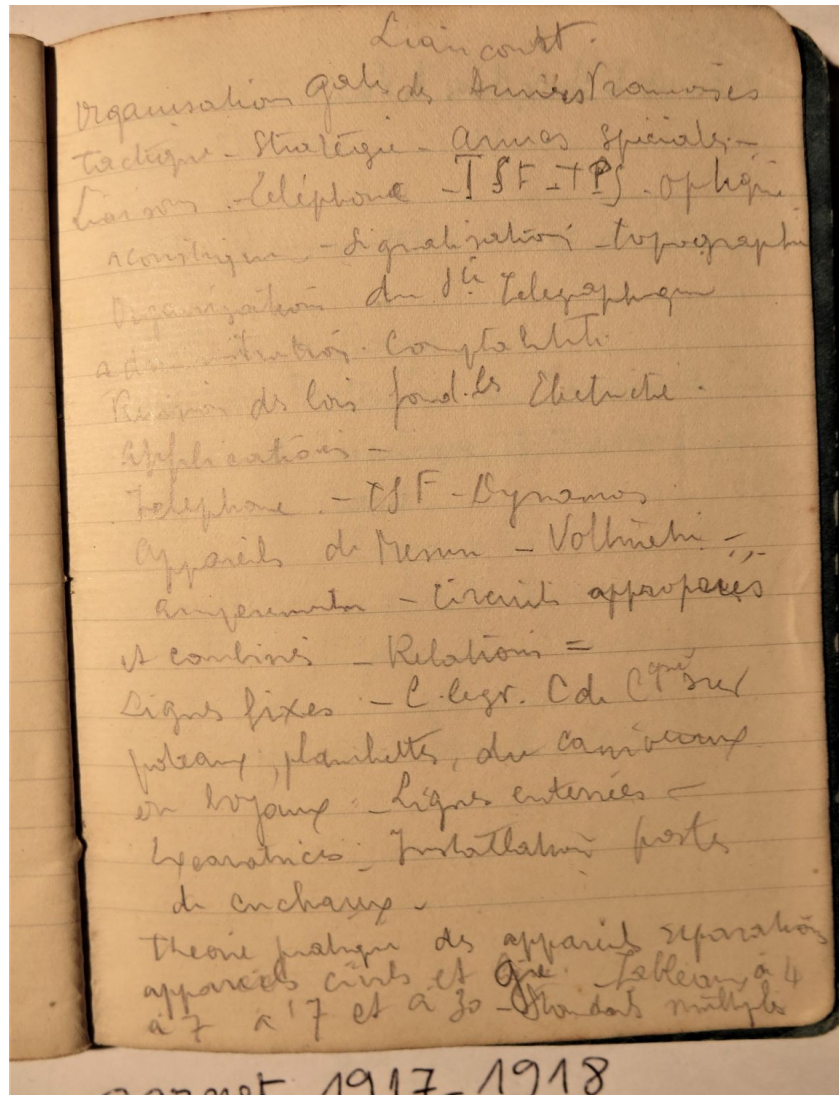 Liancourt.
Organisation gale des Armées Françaises
Tactique - Stratégie - armes spéciales -
Liaisons - Téléphone - TSF - TPS - optique
acoustique - Signalisation - topographie
Organisation du Sce Télégraphique
administration - Comptabilité
Révision des lois fond.les Electricité.
Applications -
Téléphone - TSF - Dynamos
Appareils de Mesure - Voltmètre -
ampèremètre - Circuits
et combinés - Relations =
Lignes fixes - C. legr. C de sur
poteaux, planchettes, du caniveaux
en boyaux - Lignes enterrées -
Excavatrices - Installation postes
de
théorie pratique des appareils réparations
appareils civils et Gre. Tableaux à 4
à 7 et à 30 - Standards multiples
carnet 1917-1918